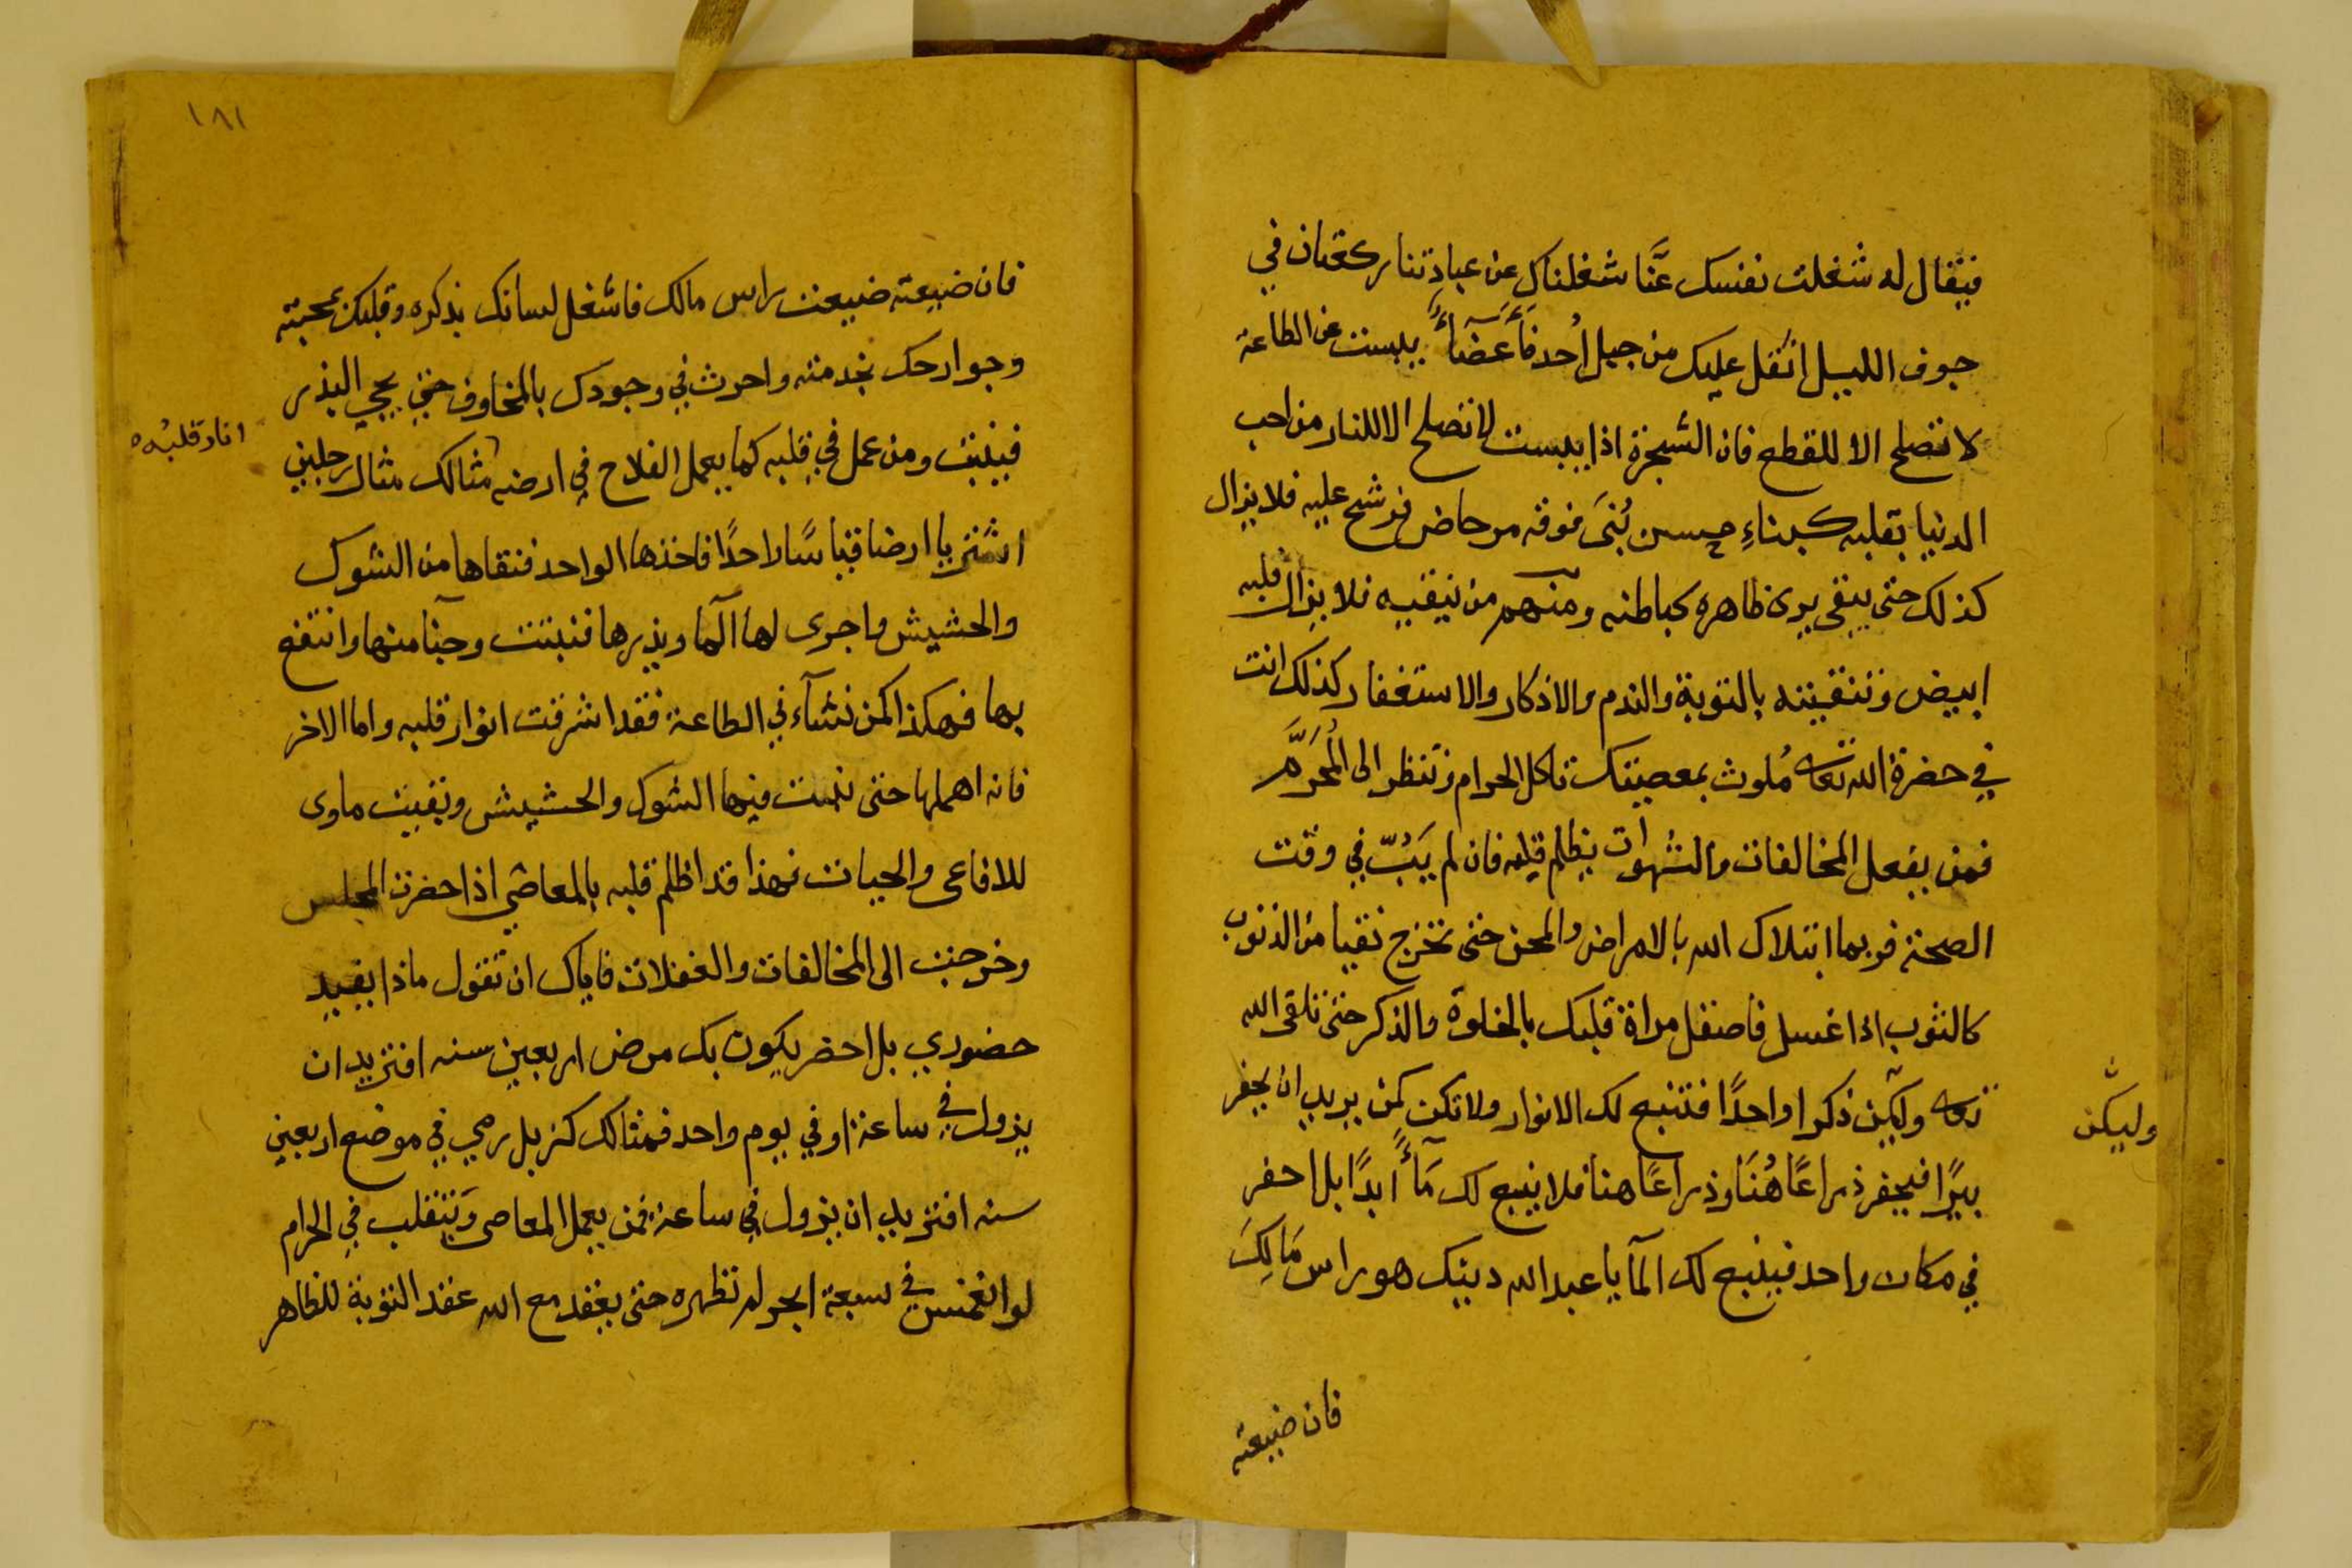 فيقال له شغلت نفسك عنَّا شغلناك عن عبادتنا ركعتان في
جوف الليل اثقل عليك من جبل أُحد فأعضاءٌ يبست عن الطاعة
لا تصلح الا للقطع فان الشجرة اذا يبست لا تصلح الا للنار من احب
الدنيا بقلبه كبناءِ حسن بُنىَ فوقه مرحاض فرشح عليه فلا يزال
كذلك حتى يبقى يرى ظاهره كباطنه ومنهم من ينقيه فلا يزال قلبه
ابيض وتنقيته بالتوبة والندم والاذكار والاستغفار كذلك انت
في حضرة الله تعالى مُلوث بمعصيتك تاكل الحرام وتنظر الى المُحَرَّم
فمن يفعل المخالفات والشهوات يظلم قلبه فان لم يَتُبّ في وقت
الصحة فربما ابتلاك الله بالامراض والمحن حتى تخرج نقيا من الذنوب
كالثوب اذا غسل فاصقل مراة قلبك بالخلوة والذكر حتى تلقى الله
تعالى وليكن ذكرا واحدًا فتنبع لك الانوار ولا تكن كمن يريد ان يحفر
بيرًا فيحفر ذراعًا هُنَا وذراعًا هنا فلا ينبع لك مَاءٌ ابدًا بل احفر
في مكان واحد فينبع لك المآ يا عبد الله دينك هو راس مَالِكَ
وليكن
فان ضيعته
١٨١
فان ضيعته ضيعت راس مالك فاشغل لسانك بذكره وقلبك بمحبته
وجوارحك بخدمته واحرث في وجودك بالمخاوف حتى يجي البذر
فينبت ومن عمل في قلبه كما يعمل الفلاح في ارضه مثالك مثال رجلين
انار قلبُه
اشتريا ارضا قياسًا واحدًا فاخذها الواحد فنقاها من الشوك
والحشيش واجرى لها المآ وبذرها فنبتت وجنا منها وانتفع
بها فهكذا كمن نشآء في الطاعة فقد اشرقت انوار قلبه واما الاخر
فانه اهملها حتى نبتت فيها الشوك والحشيش وبقيت ماوى
للافاعى والحيات فهذا قد اظلم قلبه بالمعاصي اذا حضرت المجلس
وخرجت الى المخالفات والغفلات فاياك ان تقول ماذا يفيد
حضوري بل احضر يكون بك مرض اربعين سنه افتريد ان
يزول في ساعة او في يوم واحد فمثالك كزبل رمي في موضع اربعين
سنه افتريد ان يزول في ساعة فمن يعمل المعاصى وَيتقلب في الحرام
لو انغمس في سبعة ابحر لم تطهره حتى يعقد مع الله عقد التوبة للظاهر